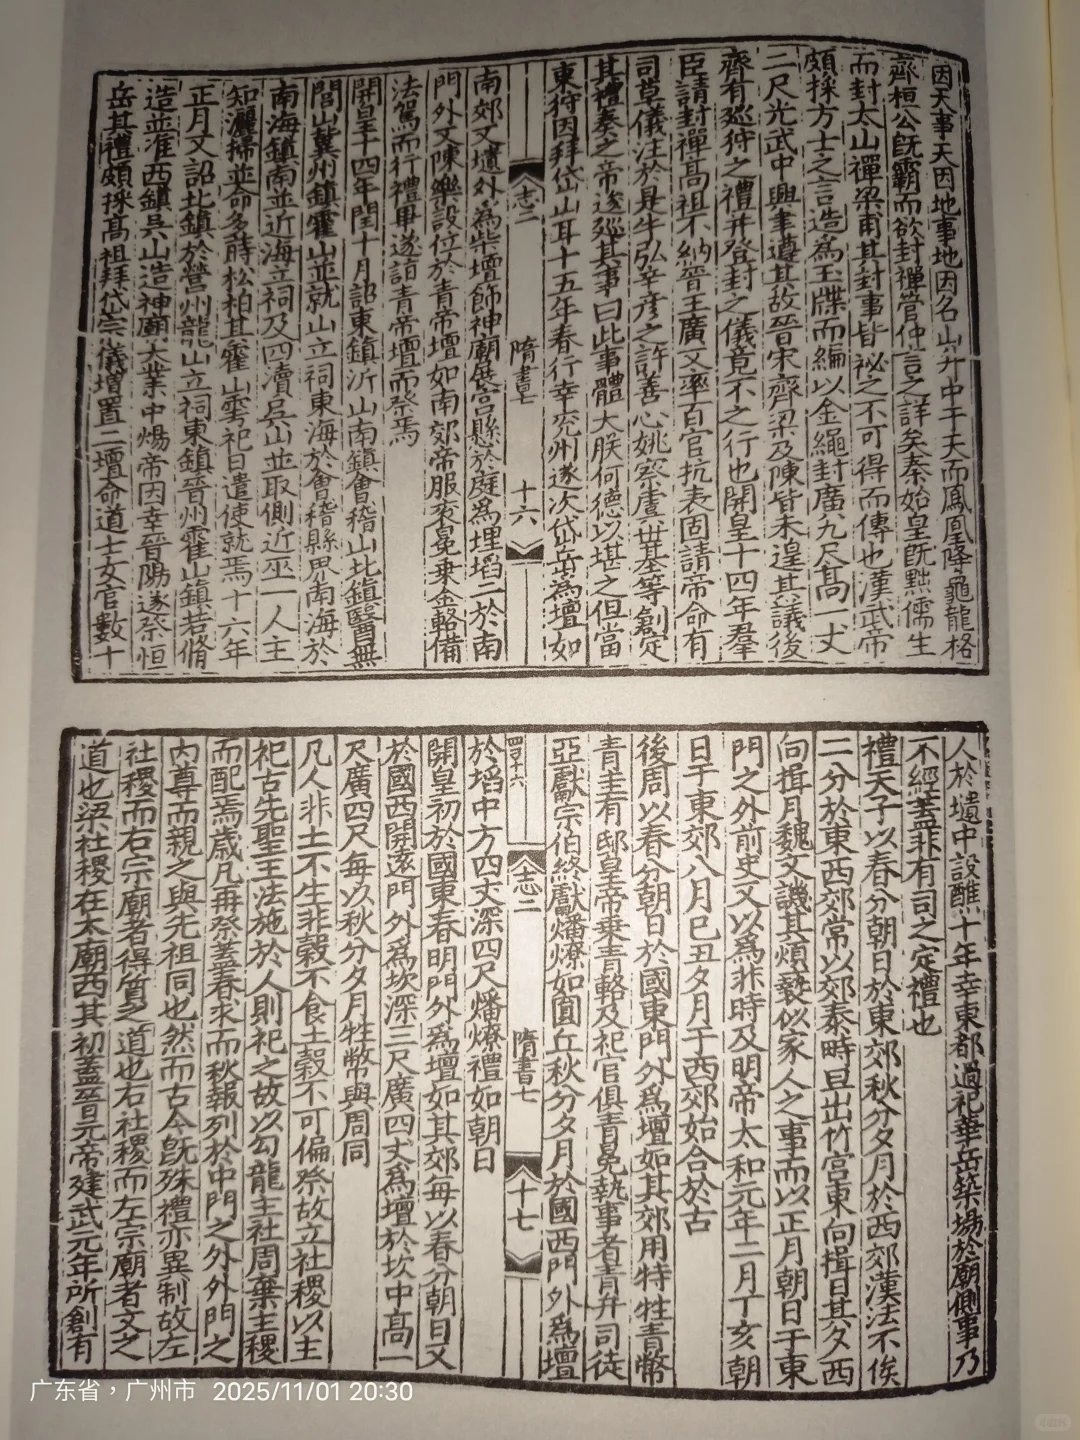 因天事天因地事地因名山升中于天而鳳凰降龜龍格
齊桓公既霸而欲封禪管仲言之詳矣秦始皇既黜儒生
而封太山禪梁甫其封事皆祕之不可得而傳也漢武帝
頗採方士之言造爲玉牒而編以金繩封廣九尺髙一丈
二尺光武中興聿遵其故晉宋齊梁及陳皆未遑其議後
齊有巡狩之禮并登封之儀竟不之行也開皇十四年羣
臣請封禪髙祖不納晉王廣又率百官抗表固請帝命有
司草儀注於是牛弘辛彦之許善心姚察虞世基等創定
其禮奏之帝逡巡其事曰此事體大朕何德以堪之但當
東狩因拜岱山耳十五年春行幸兖州遂次岱岳爲壇如
志二
隋書七
十六
南郊又壝外爲柴壇飾神廟展宫懸於庭爲埋埳二於南
門外又陳樂設位於青帝壇如南郊帝服衮冕乗金輅備
法駕而行禮畢遂詣青帝壇而祭焉
開皇十四年閏十月詔東鎮沂山南鎮會稽山北鎮醫無
閭山冀州鎮霍山並就山立祠東海於會稽縣界南海於
南海鎮南並近海立祠及四瀆吳山並取側近巫一人主
知灑掃並命多蒔松柏其霍山雩祀日遣使就焉十六年
正月又詔北鎮於營州龍山立祠東鎮晉州霍山鎮若脩
造並准西鎮吳山造神廟大業中煬帝因幸晉陽遂祭恒
岳其禮頗採髙祖拜岱宗儀増置二壇命道士女官數十
人於壝中設醮十年幸東都過祀華岳築場於廟側事乃
不經蓋非有司之定禮也
禮天子以春分朝日於東郊秋分夕月於西郊漢法不俟
二分於東西郊常以郊泰畤旦出竹宫東向揖日其夕西
向揖月魏文譏其煩䙝似家人之事而以正月朝日于東
門之外前史又以爲非時及明帝太和元年二月丁亥朝
日于東郊八月己丑夕月于西郊始合於古
後周以春分朝日於國東門外爲壇如其郊用特牲青幣
青圭有邸皇帝乗青輅及祀官俱青冕執事者青弁司徒
亞獻宗伯終獻燔燎如圓丘秋分夕月於國西門外爲壇
四十六
志二
隋書七
十七
於埳中方四丈深四尺燔燎禮如朝日
開皇初於國東春明門外爲壇如其郊每以春分朝日又
於國西開逺門外爲坎深三尺廣四丈爲壇於坎中髙一
尺廣四尺每以秋分夕月牲幣與周同
凡人非土不生非穀不食土穀不可偏祭故立社稷以主
祀古先聖王法施於人則祀之故以勾龍主社周棄主稷
而配焉歳凡再祭蓋春求而秋報列於中門之外外門之
内尊而親之與先祖同也然而古今既殊禮亦異制故左
社稷而右宗廟者得質之道也右社稷而左宗廟者文之
道也梁社稷在太廟西其初蓋晉元帝建武元年所創有
广东省，广州市 2025/11/01 20:30